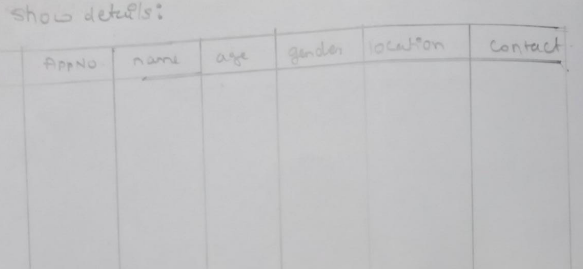 Show details:
AppNo name age gender location Contact